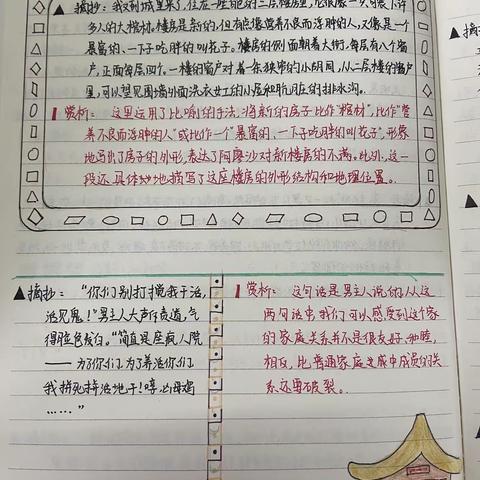 ▲摘抄：我来到城里来了，住在一座肥的三层楼房里，它很像一只可装下许
多人的大棺材。楼房是新的，但有点像营养不良而浮肿的人，又像是一个
暴富的、一下子吃胖的叫花子。楼房的侧面朝着大街，每层有八个窗
户，正面每层四个。一楼的窗户对着一条狭窄的小胡同，从二层楼的窗户
里，可以望见围墙外面洗衣女工的小屋和肮脏的排水沟。
赏析：这里运用了比喻的手法，将新的房子比作“棺材”，比作“营
养不良而浮肿的人”或比作一个“暴富的、一下子吃胖的叫花子”，形象
地写出了房子的外形，表达了阿廖沙对新楼房的不满。此外，这一
段还具体地描写了这座楼房的外形结构和地理位置。
▲摘抄：“你们别打搅我干活，
活见鬼！”男主人大声斥责道，气
得脸色发白。“简直是座疯人院
——为了你们，为了养活你们
我拼死拼活地干！哼，凶母鸡
……”
赏析：这句话是男主人说的，从这
两句话中我们可以感受到这个家
的家庭关系并不是很友好、和睦，
相反，比普通家庭或中成员的关
系还要破裂。